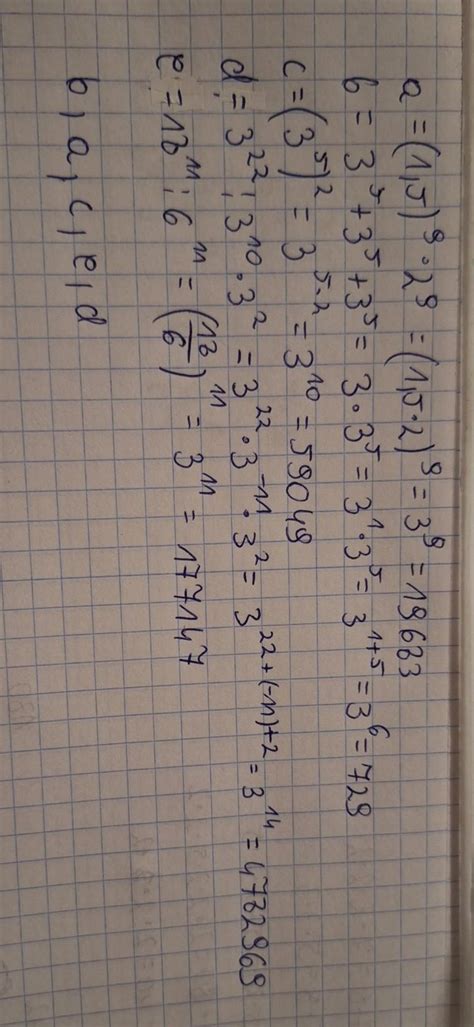 a = (1,5)⁹ · 2⁹ = (1,5 · 2)⁹ = 3⁹ = 19683
b = 3⁵ + 3⁵ + 3⁵ = 3 · 3⁵ = 3¹ · 3⁵ = 3¹⁺⁵ = 3⁶ = 729
c = (3⁵)² = 3^(5·2) = 3¹⁰ = 59049
d = 3²² : 3¹⁰ · 3² = 3²² · 3⁻¹¹ · 3² = 3^(22+(-11)+2) = 3¹⁴ = 4782969
e = 18¹¹ : 6¹¹ = (18/6)¹¹ = 3¹¹ = 177147
b, a, c, e, d